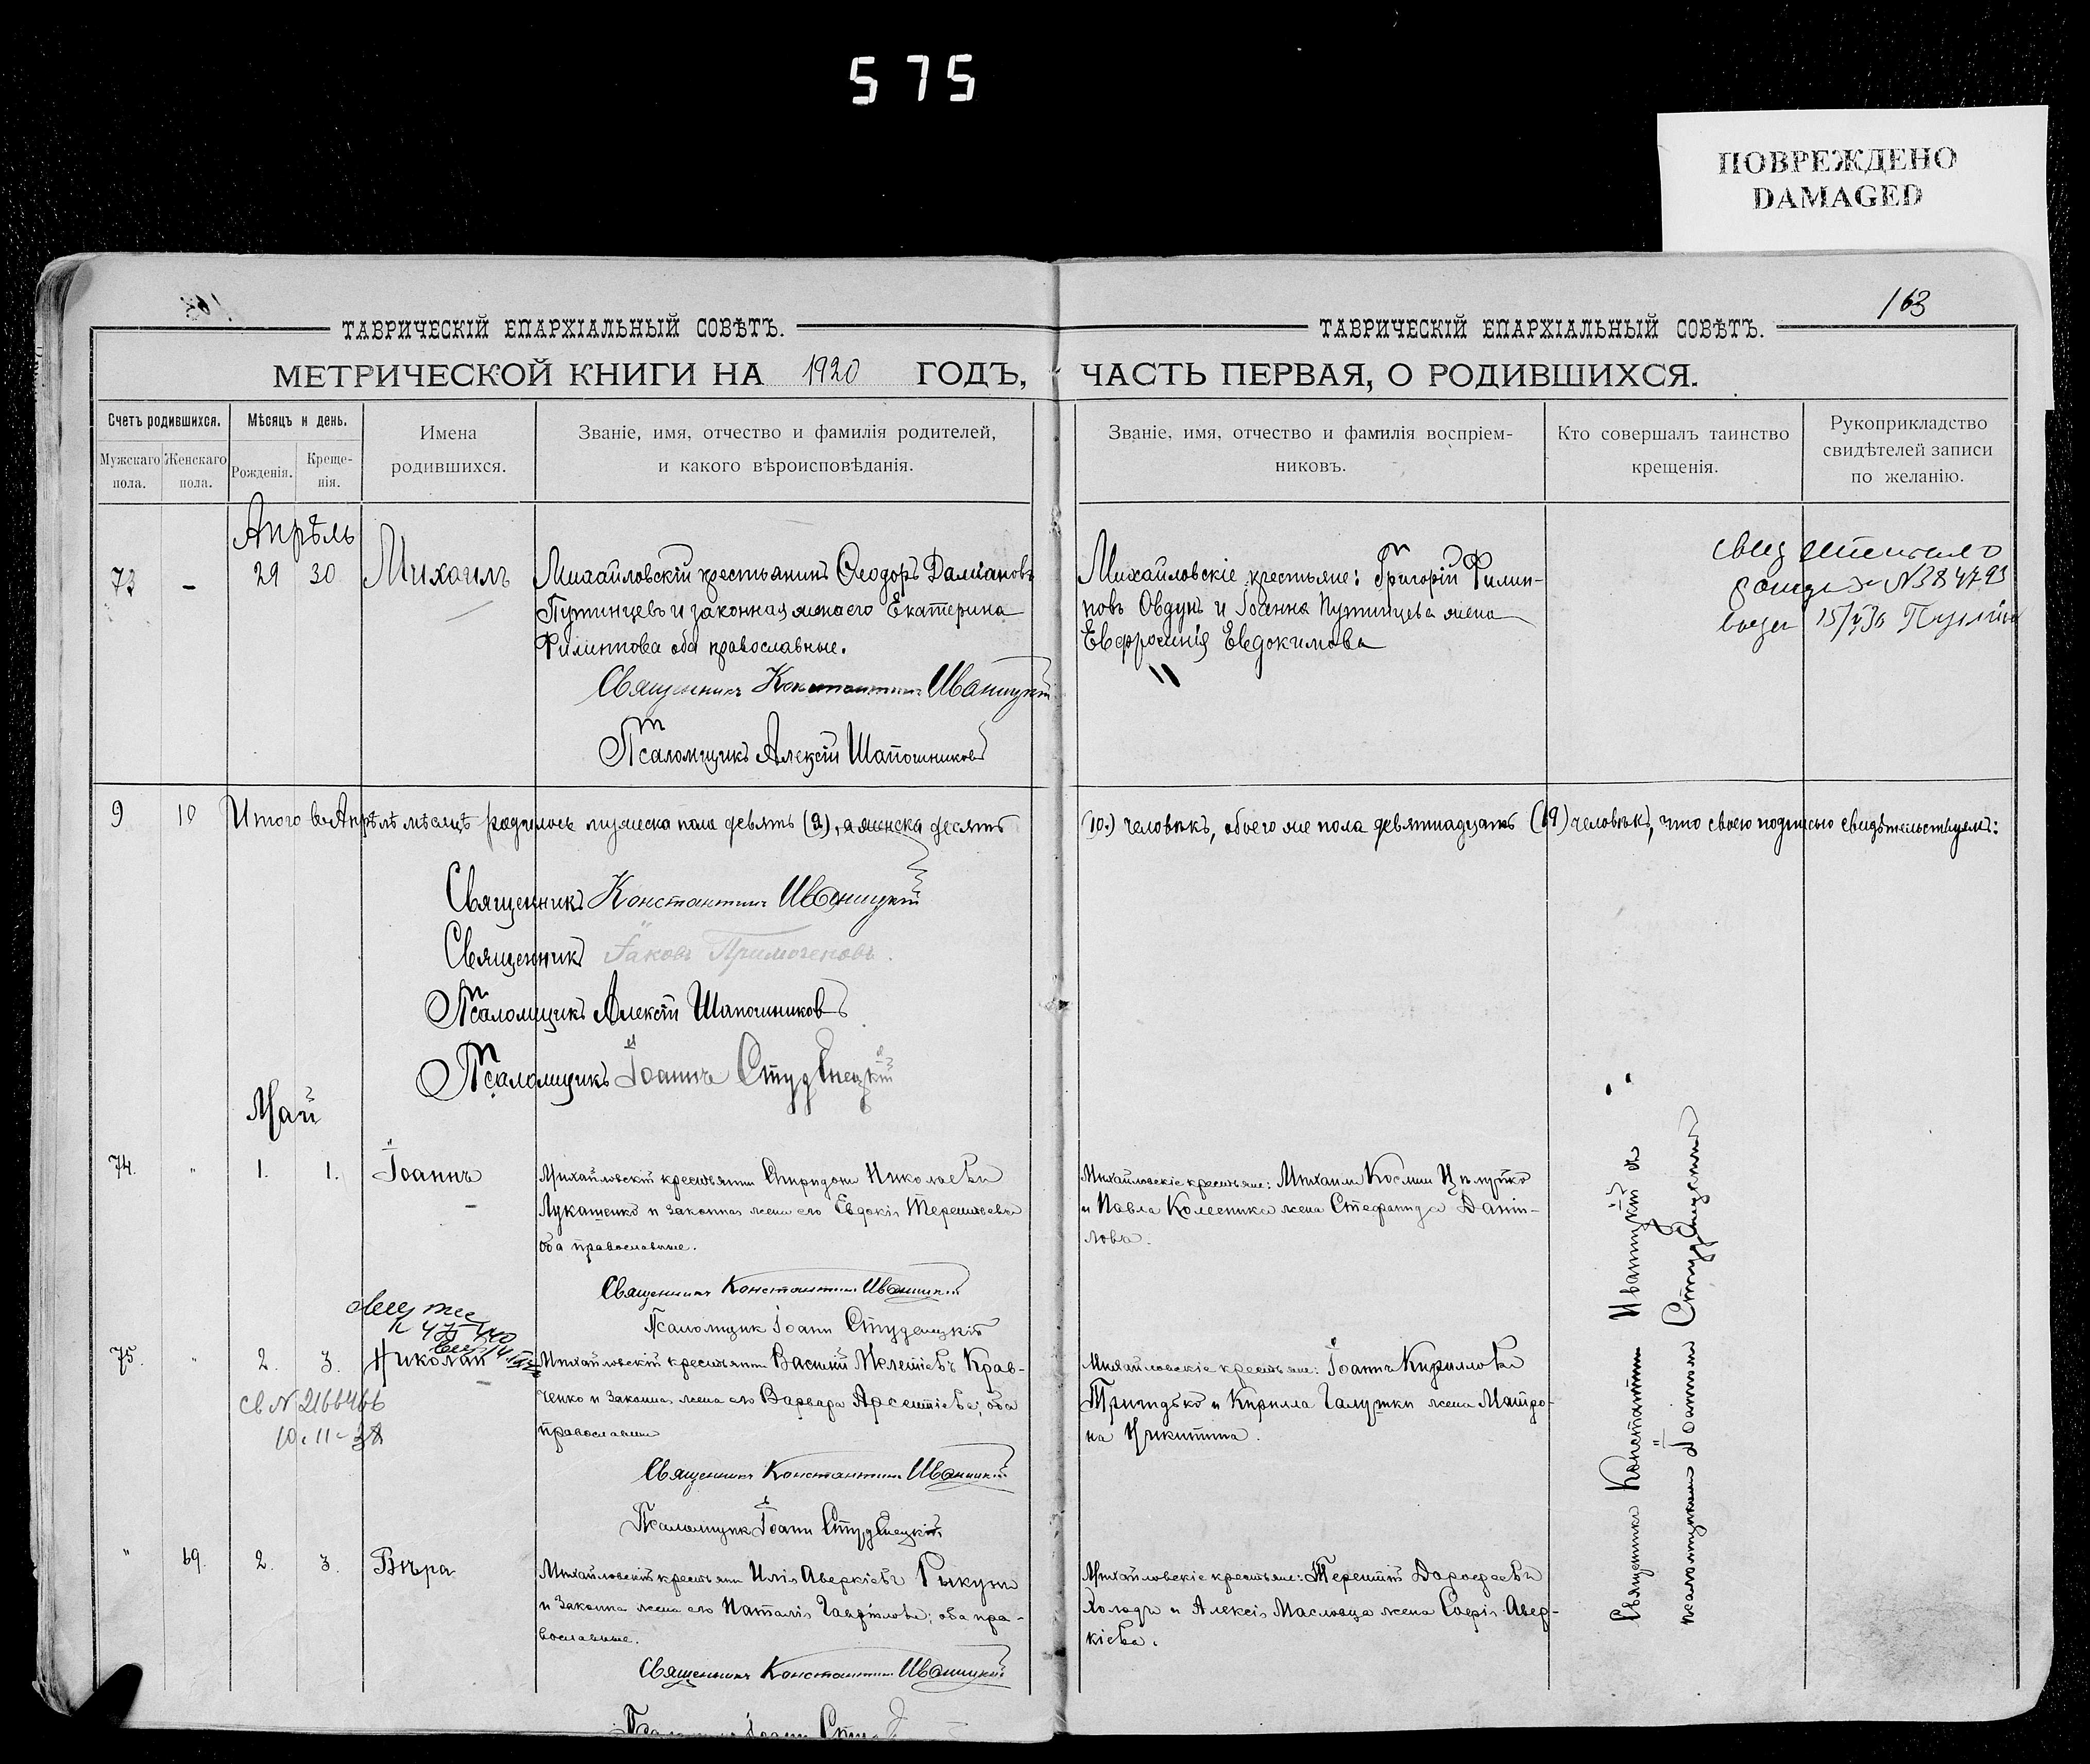 575
ПОВРЕЖДЕНО
DAMAGED
163
ТАВРИЧЕСКІЙ ЕПАРХІАЛЬНЫЙ СОВѢТЪ.
МЕТРИЧЕСКОЙ КНИГИ НА 1920 ГОДЪ,
Счетъ родившихся.
Мужскаго пола.
Женскаго пола.
Мѣсяцъ и день.
Рожденія.
Креще-
нія.
Имена
родившихся.
Званіе, имя, отчество и фамилія родителей,
и какого вѣроисповѣданія.
Апрѣль
73 - 29 30 Михаилъ
Михайловскій крестьянинъ Ѳеодоръ Даміановъ
Путинцевъ и законная жена его Екатерина
Филиппова оба православные.
Священникъ Константинъ Иваницкій
Псаломщикъ Алексій Шапошниковъ
9 10 Итого въ Апрѣлѣ мѣсяцѣ родилось мужеска пола девять (9), а женска десять
Священникъ Константинъ Иваницкій
Священникъ Іаковъ
Псаломщикъ Алексій Шапошниковъ
Псаломщикъ Іоаннъ Студенецкій
Май
74. " 1. 1. Іоаннъ
Михайловскій крестьянинъ Спиридонъ Николаевъ
Лукашенко и законная жена его Евдокія Терентьева
оба православные.
Священникъ Константинъ Иваницкій
Псаломщикъ Іоаннъ Студенецкій
75. " 2. 3. Николай
св N 2166466
10. 11 - 38
Михайловскій крестьянинъ Василій Мелетіевъ Крав-
ченко и законная жена его Варвара Арсентіева; оба
православные
Священникъ Константинъ Иваницкій
Псаломщикъ Іоаннъ Студенецкій
" 69. 2. 3. Вѣра
Михайловскій крестьянинъ Илія Аверкіевъ Рыкунъ
и законная жена его Наталія Гавріилова; оба пра-
вославные.
Священникъ Константинъ Иваницкій
ТАВРИЧЕСКІЙ ЕПАРХІАЛЬНЫЙ СОВѢТЪ.
ЧАСТЬ ПЕРВАЯ, О РОДИВШИХСЯ.
Званіе, имя, отчество и фамилія воспріем-
никовъ.
Кто совершалъ таинство
крещенія.
Рукоприкладство
свидѣтелей записи
по желанію.
Михайловскіе крестьяне: Григорій Филип-
повъ Овдунъ и Іоанна Путинцева жена
Евфросинія Евдокимова
15/V 36
(10.) человѣкъ, обоего же пола девятнадцать (19) человѣкъ, что своею подписью свидѣтельствуемъ:
Михайловскіе крестьяне: Михаилъ Космин
и Павла Колесника жена Стефанида Дани-
лова.
Михайловскіе крестьяне: Іоаннъ Кирилловъ
и Кирилла Галушки жена Матро-
на Никитина.
Михайловскіе крестьяне: Терентій Дороѳеевъ
Холодъ и Алексія Масловца жена Софія Авер-
кіева.
Священникъ Константинъ Иваницкій съ
псаломщикомъ Іоанномъ Студенецкимъ